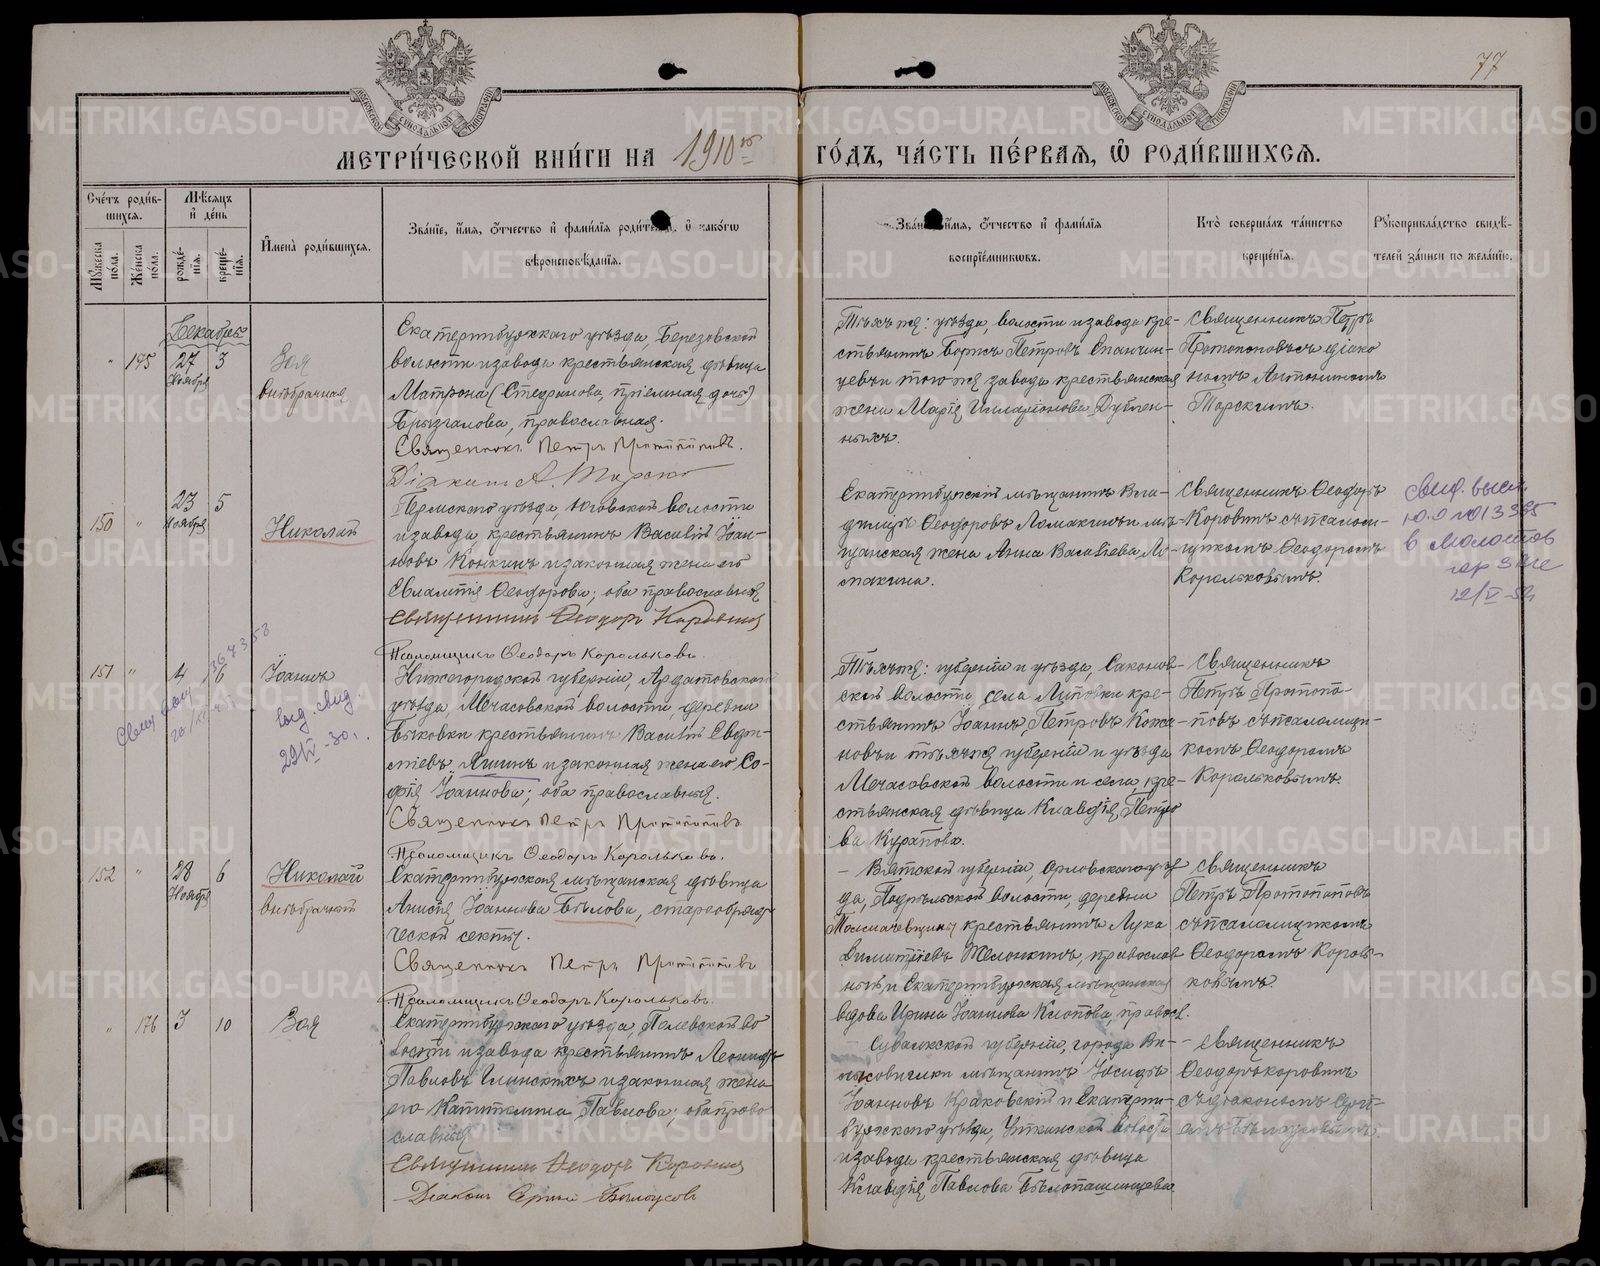 77
МЕТРИ́ЧЕСКОЙ КНИ́ГИ НА 1910й ГО́ДЪ, ЧА́СТЬ ПЕ́РВАЯ, Ѡ РОДИ́ВШИХСЯ.
Сче́тъ роди́в-
шихся.
Мѣсяцъ
и де́нь
Мꙋжеска по́ла.
Же́нска по́ла.
рожде́-
нія.
креще́-
нія.
И҆мена̀ роди́вшихся.
Зва́ніе, и҆́мя, ѻ҆́тчество и҆ фами́лія роди́телей, и҆ какогѡ
вѣроисповѣ́данія.
Зва́ніе, и҆́мя, ѻ҆́тчество и҆ фами́лія
воспріе́мниковъ.
Кто̀ соверша́лъ та́инство
креще́нія.
Рꙋкоприкла́дство свидѣ́-
телей за́писи по жела́нію.
Декабрь
" 175 27 Ноября 3
Зоя
внѣбрачная
Екатеринбужскаго уѣзда, Березовской
волости и завода крестьянская дѣвица
Матрона (Стефанова, пріемная дочь)
Брызгалова, православная.
Священникъ Петръ Протопоповъ.
Діаконъ А. Торскій
Тѣхъ же: уѣзда, волости и завода кре-
стьянинъ Борисъ Петровъ
и того же завода крестьянская
жена Марія Иларіонова
ныхъ.
Священникъ Петръ
Протопоповъ съ діако
номъ Антониномъ
Торскимъ.
150 " 23 Ноября 5
Николай
Пермскаго уѣзда, Юговской волости
и завода, крестьянинъ Василій Іоан-
новъ Конкинъ и законная жена его
Евлампія Ѳеодорова; оба православныя
Священникъ Ѳеодоръ Коровинъ
Псаломщикъ Ѳеодоръ Корольковъ.
Екатеринбужскій мѣщанинъ Вла-
димиръ Ѳеодоровъ Ломакинъ и мѣ-
щанская жена Анна Васильева Ло-
макина.
Священникъ Ѳеодоръ
Коровинъ съ псалом-
щикомъ Ѳеодоромъ
Корольковымъ.
свид. высл.
в Молотов
151 " 4 6
Іоаннъ
выд. свид.
29/V-30.
Нижегородской губерніи, Ардатовскаго
уѣзда, Мечасовской волости, деревни
Быковки крестьянинъ Василій Евдо-
кіевъ Лушинъ и законная жена его Со-
фія Іоаннова; оба православныя.
Священникъ Петръ Протопоповъ
Псаломщикъ Ѳеодоръ Корольковъ.
Тѣхъ же: губерніи и уѣзда, Саконов-
ской волости, села Липовки кре-
стьянинъ Іоаннъ Петровъ Кожа-
новъ и тѣхъ же губерніи и уѣзда
Мечасовской волости и села, кре-
стьянская дѣвица Клавдія Петро
ва Куратова.
Священникъ
Петръ Протопо-
повъ съ псаломщи-
комъ Ѳеодоромъ
Корольковымъ.
152 " 28 Ноября 6
Николай
внѣбрачный
Екатеринбужская мѣщанская дѣвица
Анисія Іоаннова Бѣлова, старообряд-
ческой секты.
Священникъ Петръ Протопоповъ
Псаломщикъ Ѳеодоръ Корольковъ.
Вятской губерніи, Орловскаго уѣз
да, Подрѣльской волости, деревни
Толмачевщины крестьянинъ Лука
Димитріевъ Телонкинъ, православ
ный и Екатеринбужская мѣщанская
вдова Ирина Іоаннова Клопова, правосл.
Священникъ
Петръ Протопоповъ
съ псаломщикомъ
Ѳеодоромъ Король-
ковымъ.
" 176 3 10
Зоя
Екатеринбужскаго уѣзда, Полевской во
лости и завода крестьянинъ Леонидъ
Павловъ Глинскихъ и законная жена
его Капитолина Павлова; оба право
славныя
Священникъ Ѳеодоръ Коровинъ
Діаконъ Сергій Бѣлоусовъ
Сувалкской губерніи, города Ви-
мѣщанинъ Іосифъ
Іоанновъ Краковскій и Екатерин-
бужскаго уѣзда, Уткинской волости
и завода крестьянская дѣвица
Клавдія Павлова Бѣлопашинцева
Священникъ
Ѳеодоръ Коровинъ
съ діакономъ Серги-
емъ Бѣлоусовымъ.
METRIKI.GASO-URAL.RU